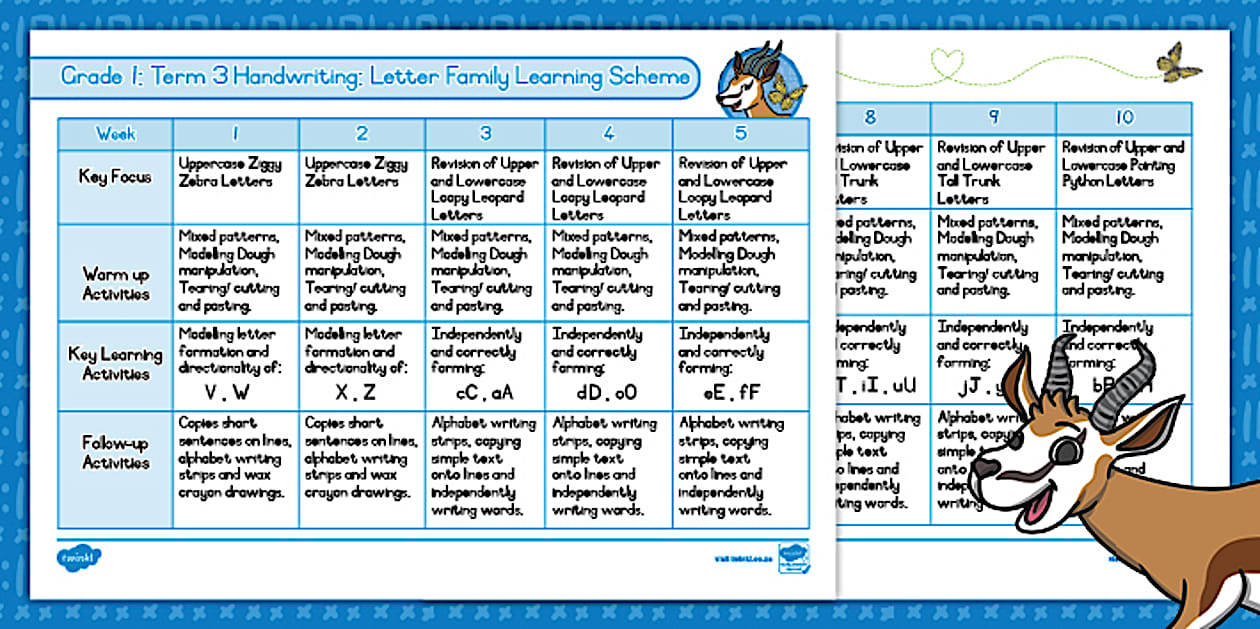 Grade 1: Term 3 Handwriting: Letter Family Learning Scheme
Week
1
2
3
4
5
Key Focus
Uppercase Ziggy
Zebra Letters
Uppercase Ziggy
Zebra Letters
Revision of Upper
and Lowercase
Loopy Leopard
Letters
Revision of Upper
and Lowercase
Loopy Leopard
Letters
Revision of Upper
and Lowercase
Loopy Leopard
Letters
Warm up
Activities
Mixed patterns,
Modelling Dough
manipulation,
Tearing/ cutting
and pasting.
Mixed patterns,
Modelling Dough
manipulation,
Tearing/ cutting
and pasting.
Mixed patterns,
Modelling Dough
manipulation,
Tearing/ cutting
and pasting.
Mixed patterns,
Modelling Dough
manipulation,
Tearing/ cutting
and pasting.
Mixed patterns,
Modelling Dough
manipulation,
Tearing/ cutting
and pasting.
Key Learning
Activities
Modelling letter
formation and
directionality of:
V , W
Modelling letter
formation and
directionality of:
X , Z
Independently
and correctly
forming:
cC , aA
Independently
and correctly
forming:
dD , oO
Independently
and correctly
forming:
eE , fF
Follow-up
Activities
Copies short
sentences on lines,
alphabet writing
strips and wax
crayon drawings.
Copies short
sentences on lines,
alphabet writing
strips and wax
crayon drawings.
Alphabet writing
strips, copying
simple text
onto lines and
independently
writing words.
Alphabet writing
strips, copying
simple text
onto lines and
independently
writing words.
Alphabet writing
strips, copying
simple text
onto lines and
independently
writing words.
twinkl
visit twinkl.co.za
8
9
10
of Upper
Lowercase
Trunk
Revision of Upper
and Lowercase
Tall Trunk
Letters
Revision of Upper and
Lowercase Pointing
Python Letters
patterns,
Dough
cutting
pasting.
Mixed patterns,
Modelling Dough
manipulation,
Tearing/ cutting
and pasting.
Mixed patterns,
Modelling Dough
manipulation,
Tearing/ cutting
and pasting.
correctly
T , iI , uU
Independently
and correctly
forming:
jJ ,
Independently
and correctly
writing
copying
text
lines and
words.
Alphabet writing
strips,
simple
onto
writing
and